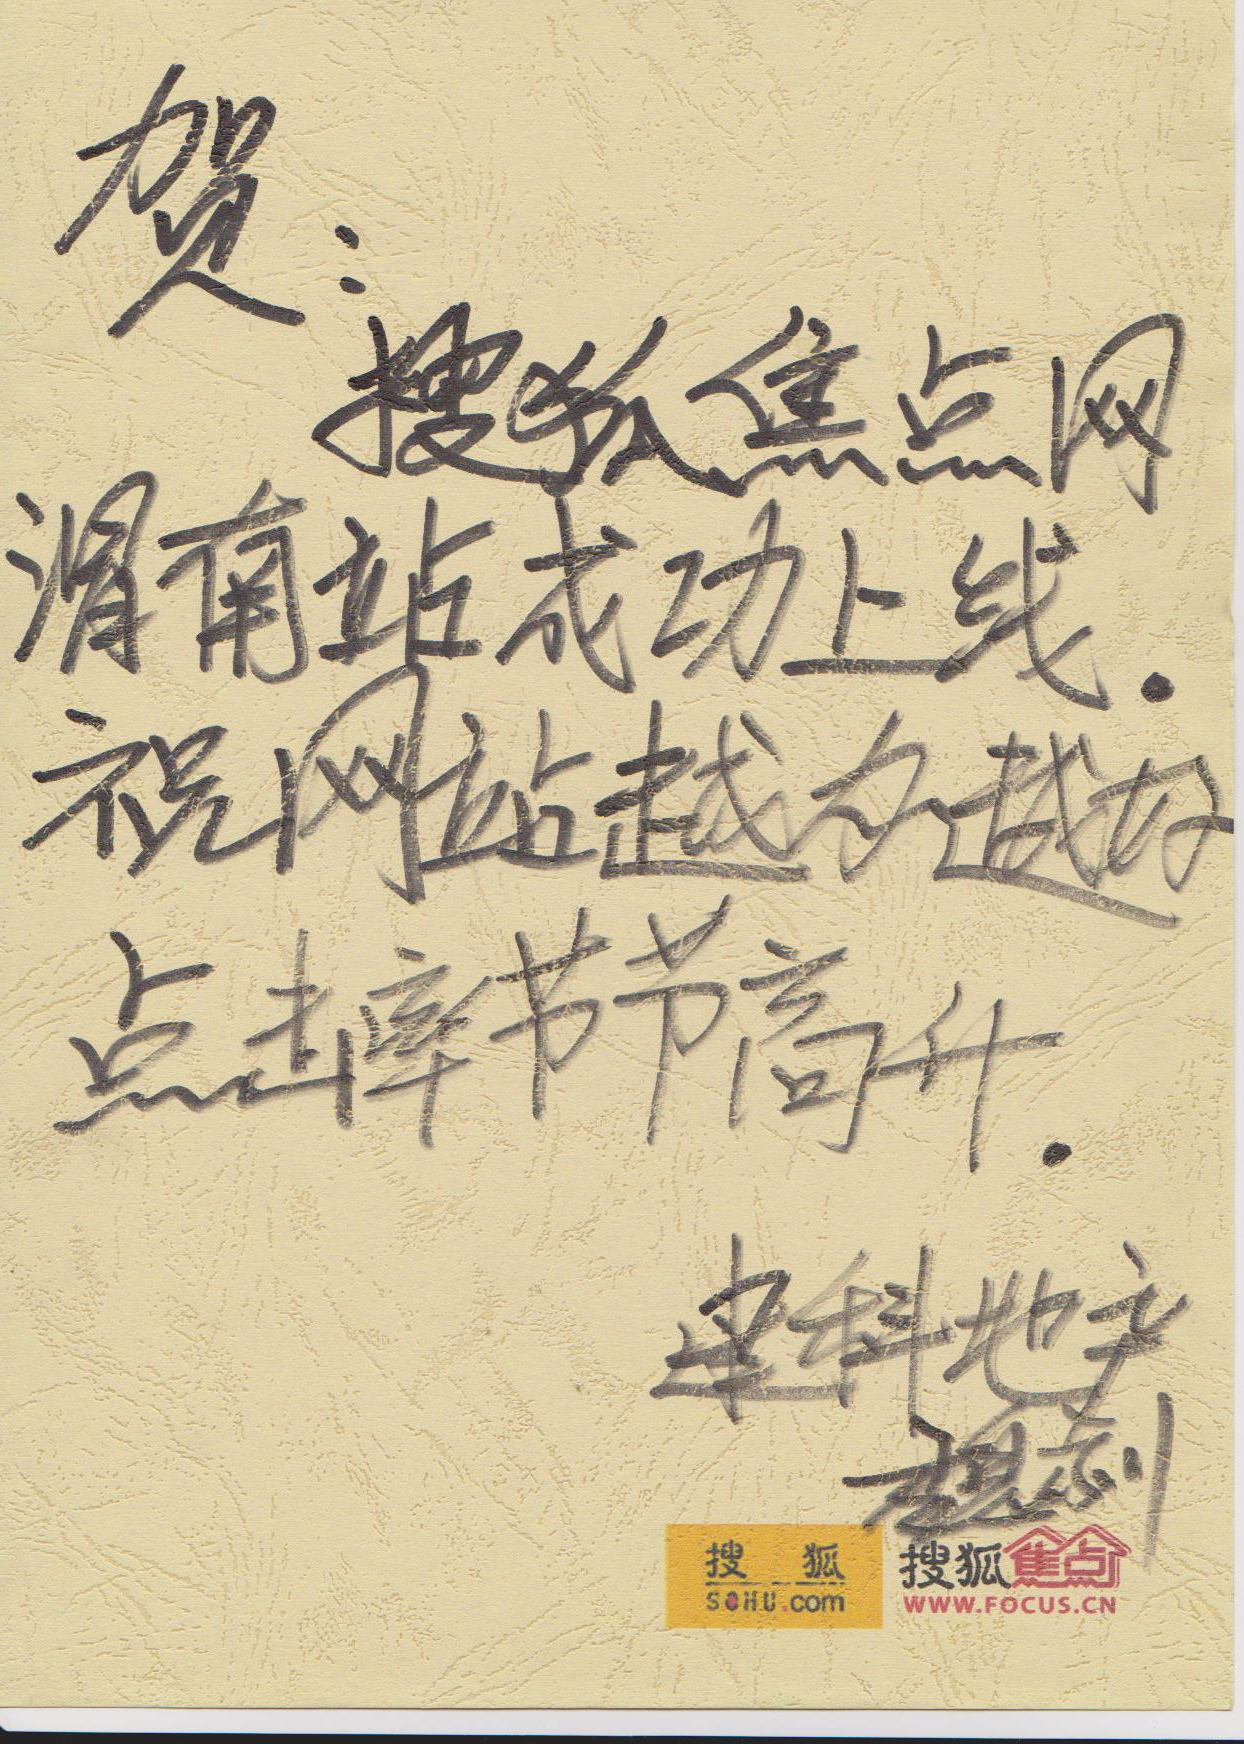 贺：
搜狐焦点网
渭南站成功上线.
祝网站越办越好
点击率节节高升.
建科地产
搜狐 搜狐焦点
SOHU.com WWW.FOCUS.CN